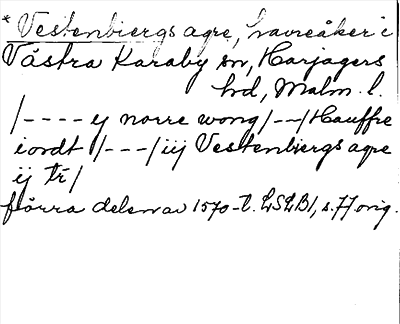 * Vestenbiergs agre, havreåker i
Västra Karaby sn, Harjagers
hd, Malm. l.
/---- ej norre wong/--/Hauffre
iordt /---/iij Vestenbiergs agre
ij tr/
förra delen av 1570-t. LSLB1, s. 77 orig.